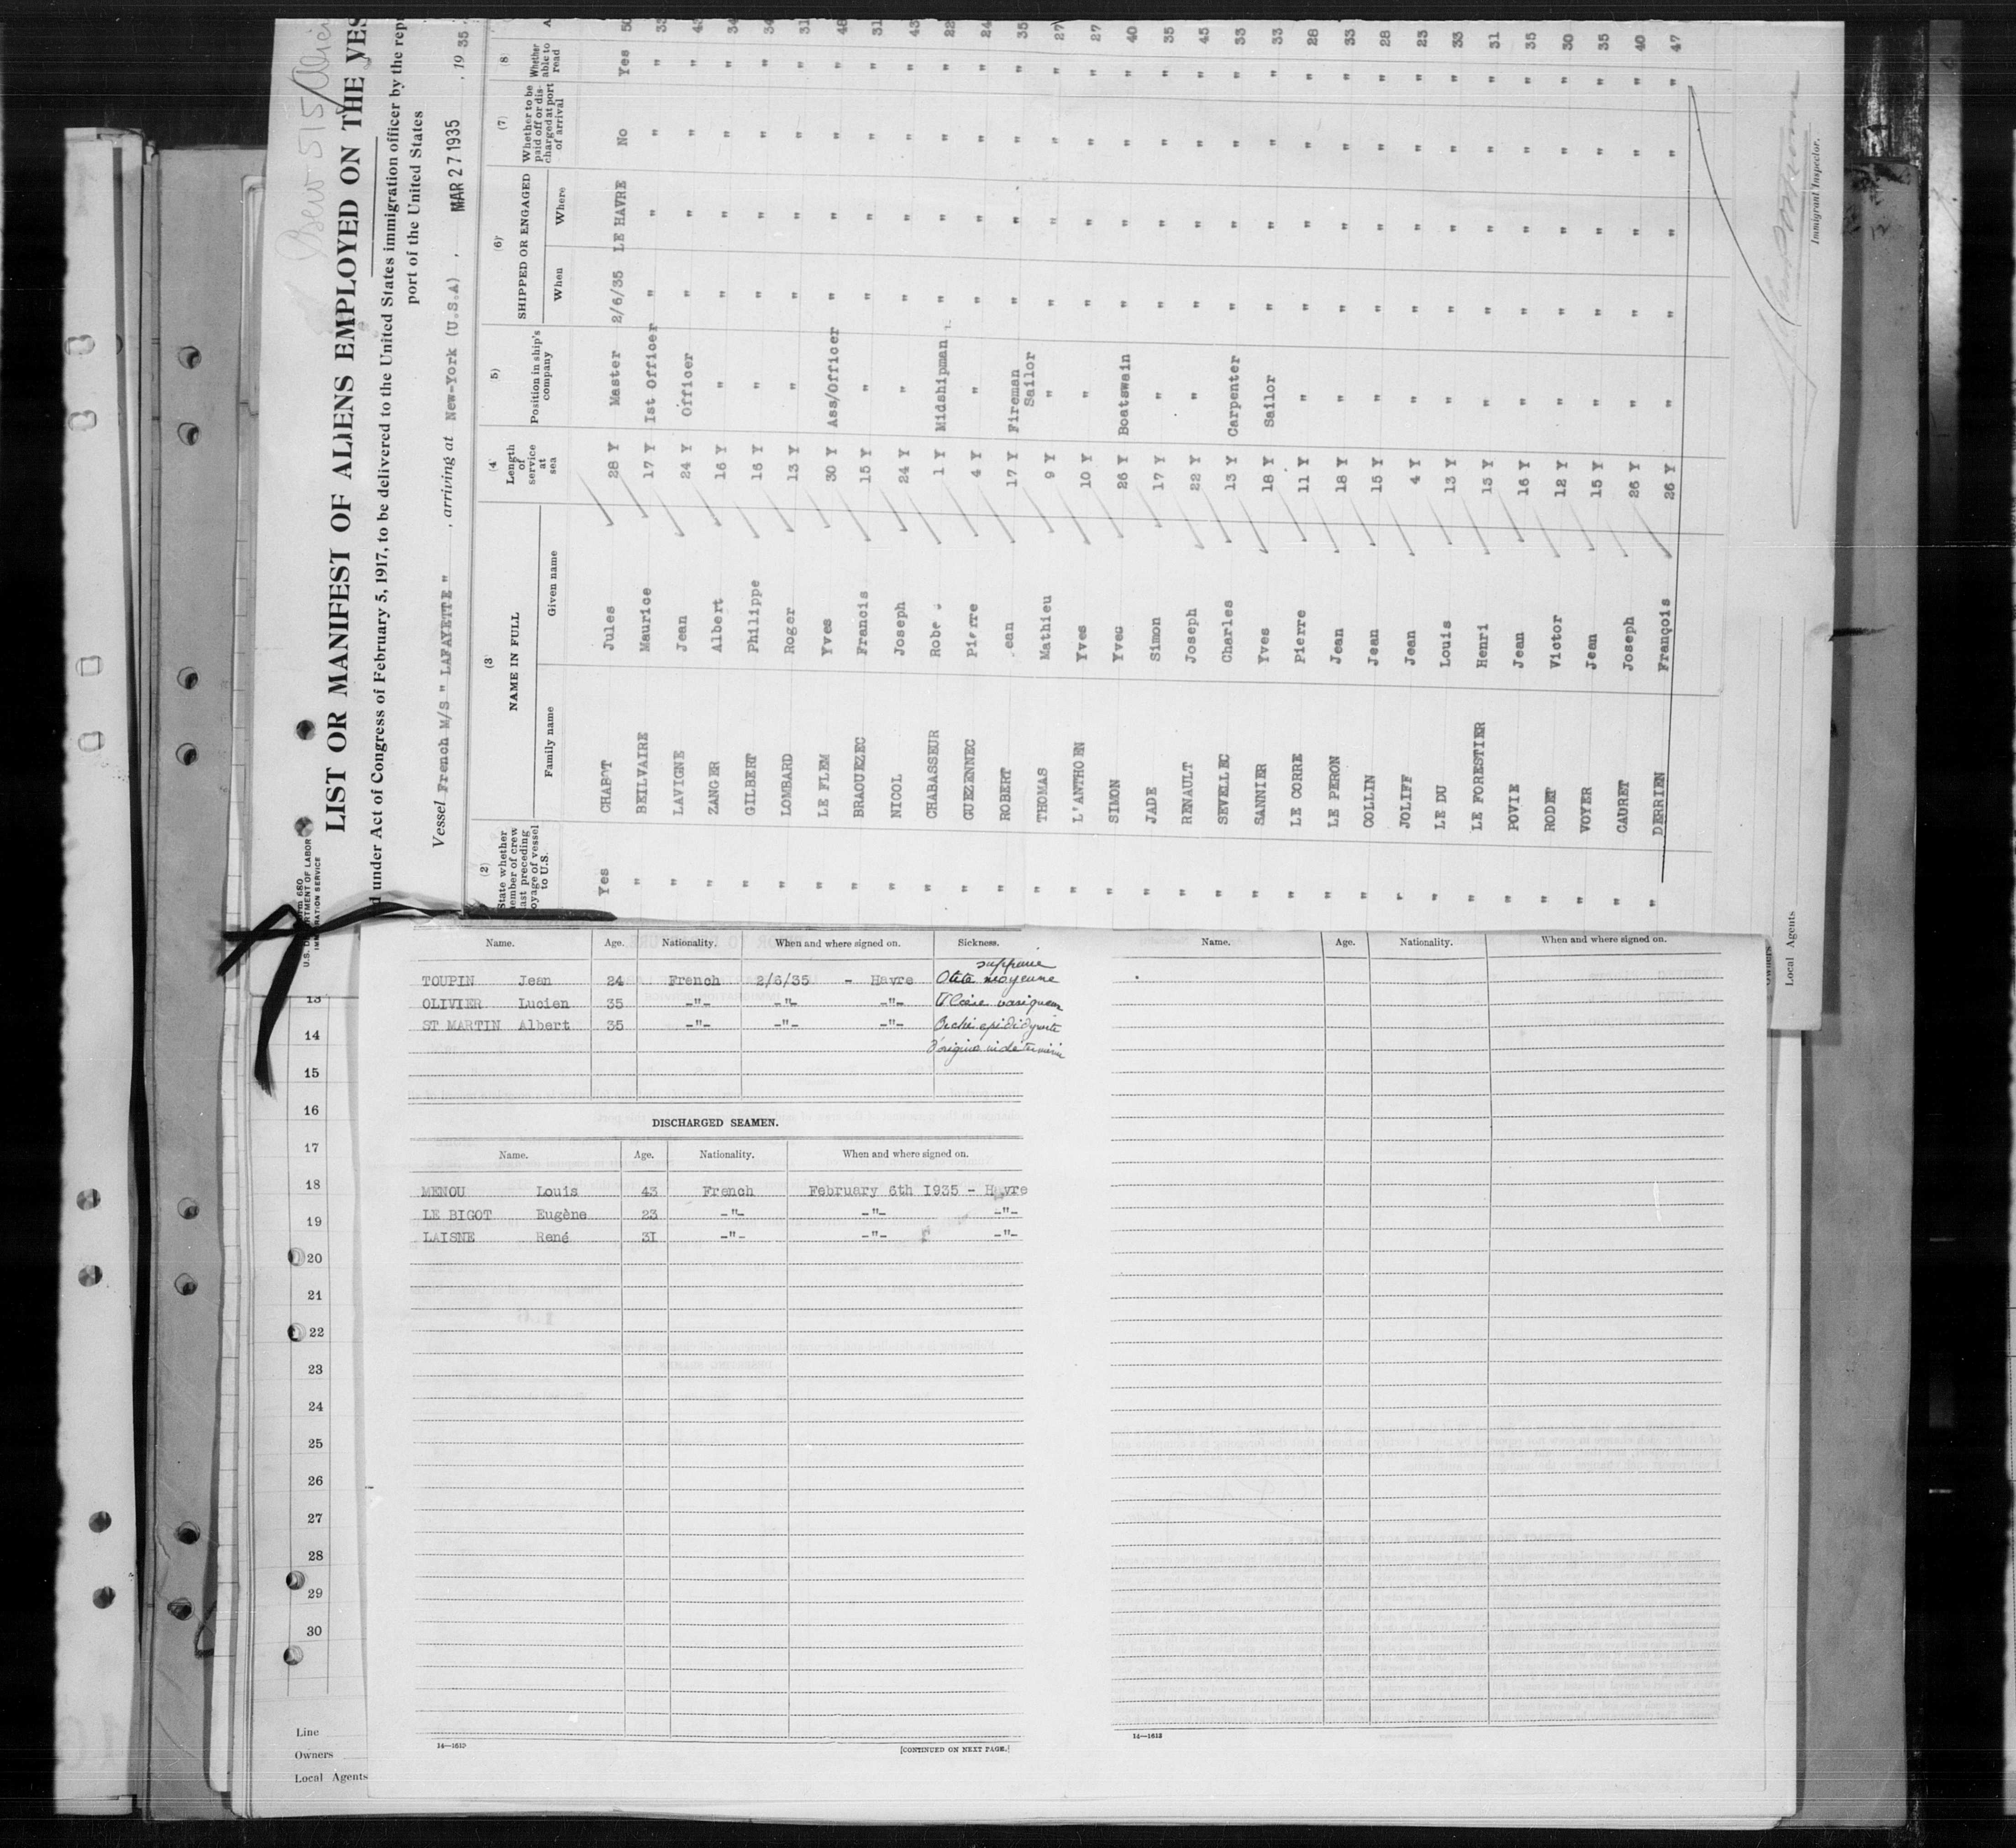 LIST OR MANIFEST OF ALIENS EMPLOYED ON THE VES
under Act of Congress of February 5, 1917, to be delivered to the United States immigration officer by the rep
port of the United States
Vessel French M/S " LAFAYETTE " , arriving at New-York (U.S.A) , MAR 27 1935 , 19 35
U.S. DEPARTMENT OF LABOR
IMMIGRATION SERVICE
(2) (3) (4) (5) (6) (7) (8)
State whether member of crew last preceding voyage of vessel to U.S. NAME IN FULL Family name Given name Length of service at sea Position in ship's company SHIPPED OR ENGAGED When Where Whether to be paid off or discharged at port of arrival Whether able to read A
Yes CHABOT Jules 28 Y Master 2/6/35 LE HAVRE No Yes 50
" BEILVAIRE Maurice 17 Y Ist Officer " " " " 33
" LAVIGNE Jean 24 Y Officer " " " " 43
" ZANGER Albert 16 Y " " " " " 34
" GILBERT Philippe 16 Y " " " " " 34
" LOMBARD Roger 13 Y " " " " " 31
" LE FLEM Yves 30 Y Ass/Officer " " " " 48
" BRAOUEZEC Francis 15 Y " " " " " 31
" NICOL Joseph 24 Y " " " " " 43
" CHABASSEUR Robe 1 Y Midshipman " " " " 22
" GUEZENNEC Pierre 4 Y " " " " " 24
" ROBERT ean 17 Y Fireman Sailor " " " " 35
" THOMAS Mathieu 9 Y " " " " " 27
" L'ANTHOEN Yves 10 Y " " " " " 27
" SIMON Yves 26 Y Boatswain " " " " 40
" JADE Simon 17 Y " " " " " 35
" RENAULT Joseph 22 Y " " " " " 45
" SEVELLEC Charles 13 Y Carpenter " " " " 33
" SANNIER Yves 18 Y Sailor " " " " 33
" LE CORRE Pierre 11 Y " " " " " 28
" LE PERON Jean 18 Y " " " " " 33
" COLLIN Jean 15 Y " " " " " 28
" JOLIFF Jean 4 Y " " " " " 23
" LE DU Louis 13 Y " " " " " 33
" LE FORESTIER Henri 13 Y " " " " " 31
" POVIE Jean 16 Y " " " " " 35
" RODET Victor 12 Y " " " " " 30
" VOYER Jean 15 Y " " " " " 35
" CADRET Joseph 26 Y " " " " " 40
" DERRIEN François 26 Y " " " " " 47
Immigrant Inspector.
Owners
Local Agents
Name. Age. Nationality. When and where signed on. Sickness.
TOUPIN Jean 24 French 2/6/35 - Havre Otite moyenne
OLIVIER Lucien 35 -"- -"- -"-
ST MARTIN Albert 35 -"- -"- -"-
DISCHARGED SEAMEN.
Name. Age. Nationality. When and where signed on.
MENOU Louis 43 French February 6th 1935 - Havre
LE BIGOT Eugène 23 -"- -"- -"-
LAISNE René 31 -"- -"- -"-
14—1613
[CONTINUED ON NEXT PAGE.]
Name. Age. Nationality. When and where signed on.
14—1613
13
14
15
16
17
18
19
20
21
22
23
24
25
26
27
28
29
30
Line
Owners
Local Agents